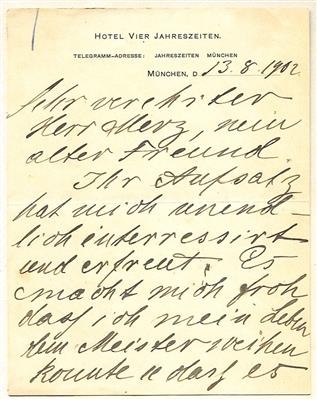 HOTEL VIER JAHRESZEITEN.
TELEGRAMM-ADRESSE: JAHRESZEITEN MÜNCHEN
MÜNCHEN, D 13. 8. 1902.
Sehr verehrter
Herr Merz, mein
alter Freund
Ihr Aufsatz
hat mich unend-
lich interressirt
und erfreut. Es
macht mich froh
dass ich mein Leben
dem Meister weihen
konnte u darf es